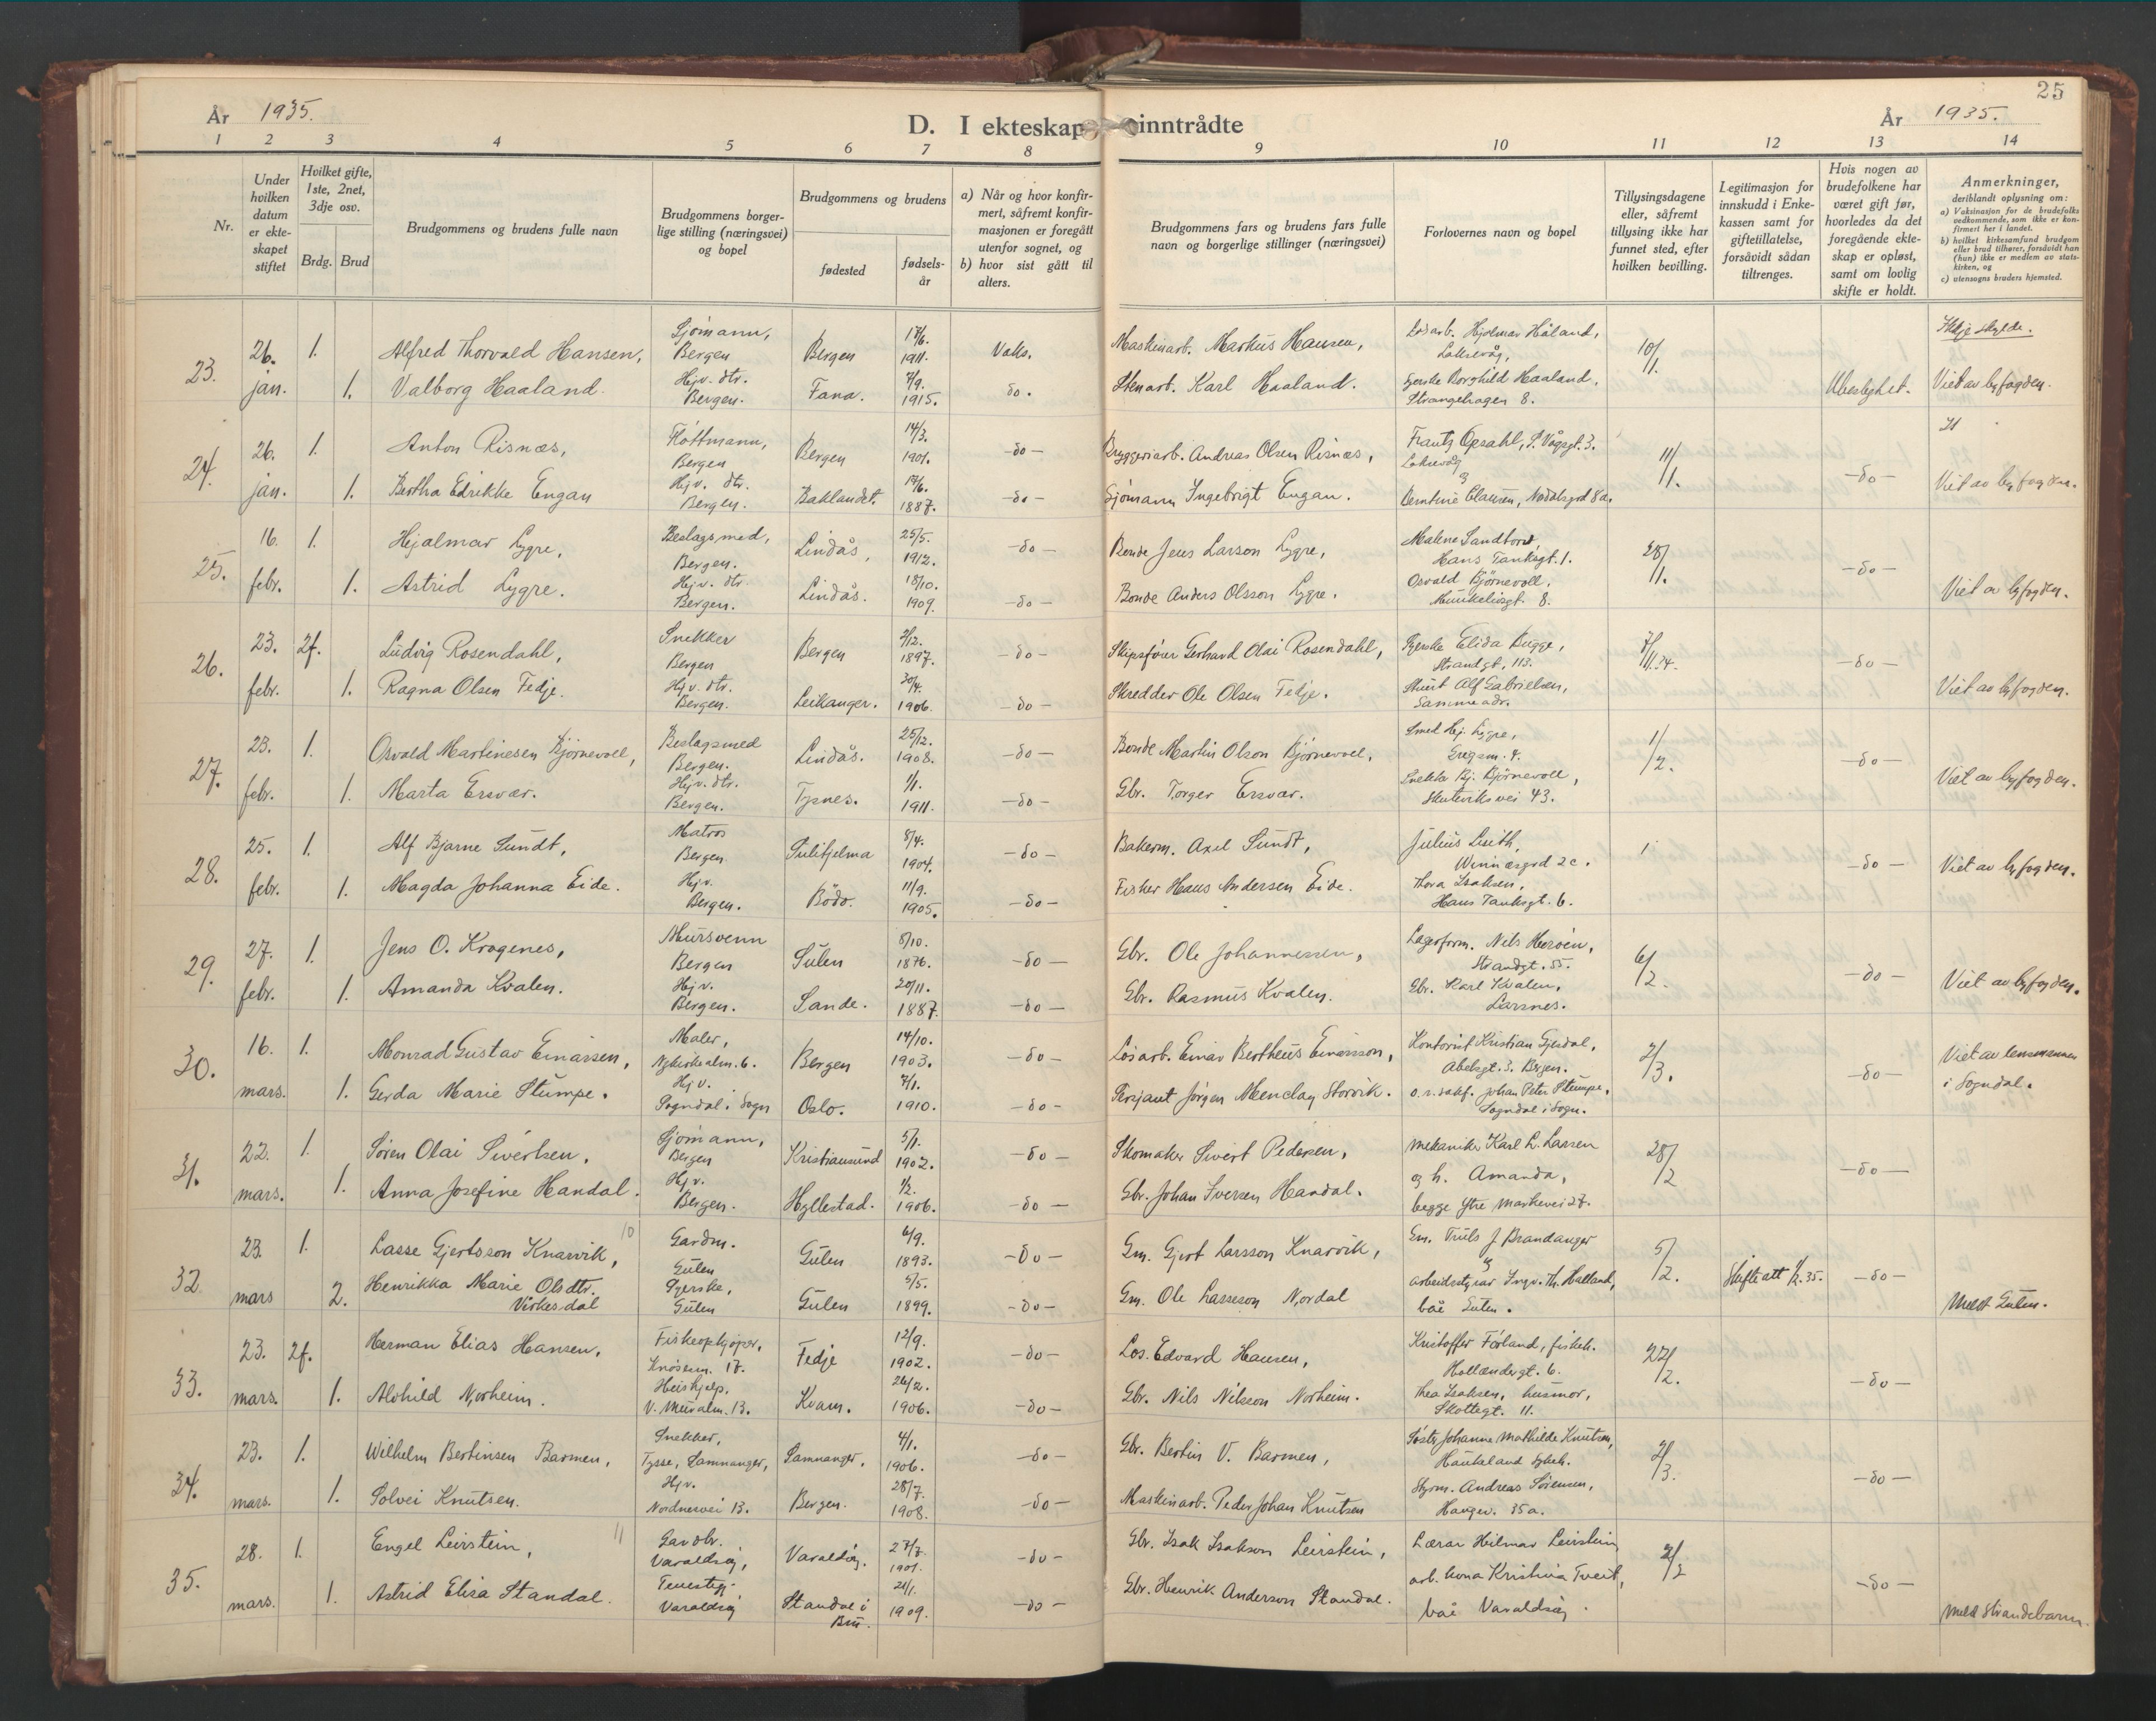 25
År 1935.
D. I ekteskap inntrådte
År 1935.
1 2 3 4 5 6 7 8 9 10 11 12 13 14
Nr.
Under hvilken datum er ekte-skapet stiftet
Hvilket gifte, 1ste, 2net, 3dje osv.
Brdg. Brud
Brudgommens og brudens fulle navn
Brudgommens borger-lige stilling (næringsvei) og bopel
Brudgommens og brudens
fødested
fødsels-år
a) Når og hvor konfir-mert, såfremt konfir-masjonen er foregått utenfor sognet, og
b) hvor sist gått til alters.
Brudgommens fars og brudens fars fulle navn og borgerlige stillinger (næringsvei)
Forlovernes navn og bopel
Tillysingsdagene eller, såfremt tillysing ikke har funnet sted, efter hvilken bevilling.
Legitimasjon for innskudd i Enke-kassen samt for giftetillatelse, forsåvidt sådan tiltrenges.
Hvis nogen av brudefolkene har været gift før, hvorledes da det foregående ekte-skap er opløst, samt om lovlig skifte er holdt.
Anmerkninger, deriblandt oplysning om:
a) Vaksinasjon for de brudefolks vedkommende, som ikke er kon-firmert her i landet.
b) hvilket kirkesamfund brudgom eller brud tilhører, forsåvidt han (hun) ikke er medlem av stats-kirken, og
c) utensogns bruders hjemsted.
23. 26. jan. 1. Alfred Thorvald Hansen, Sjømann, Bergen Bergen 17/6. 1911. Vaks. Maskinarb. Markus Hansen, Løsarb. Hjalmar Håland, Laksevåg, 10/1. Ikkje skylde.
1. Valborg Haaland. Hjv. dtr. Bergen. Fana. 7/9. 1915. do. Stenarb. Karl Haaland. Syerske Borghild Haaland, Strangehagen 8. Ubeslyhet. Viet av byfogden.
24. 26. jan. 1. Anton Risnæs, Fløttmann, Bergen Bergen 14/3. 1901. -do- Bryggeriarb. Andreas Olsen Risnæs, Frantz Opsahl, P. Vågsgt. 3. Laksevåg 11/1. -do-
1. Bertha Edrikke Engan Hjv. dtr. Bergen. Baklandet. 1887. -do- Sjømann Ingebrigt Engan. og Berntine Clausen, Nødalsgrd 8a. Viet av byfogden.
25. 16. febr. 1. Hjalmar Lygre, Beslagsmed, Bergen. Lindås, 25/5. 1912. -do- Bonde Jens Larson Lygre, Malene Sandtorv, Hans Tanksgt. 1. 28/1. -do-
1. Astrid Lygre. Hjv. dtr. Bergen. Lindås. 18/10. 1909. -do- Bonde Anders Olsson Lygre. Osvald Bjørnevoll, Munkelivsgt. 8. Viet av byfogden.
26. 23. febr. 2f. Ludvig Rosendahl, Snekker Bergen Bergen 2/12. 1897. -do- Skipsfører Gerhard Olai Rosendahl, Syerske Elida Bugge, Strandgt. 113. 7/11.34. -do-
1. Ragna Olsen Fedje. Hjv. dtr. Bergen. Leikanger. 30/4. 1906. -do- Skredder Ole Olsen Fedje. Stuert Alf Gabrielsen, Samme adr. Viet av byfogden.
27. 23. febr. 1. Osvald Martinesen Bjørnevoll, Beslagsmed Bergen. Lindås. 25/12. 1908. -do- Bonde Martin Olson Bjørnevoll, Smed Hj. Lygre, 1/2. -do-
1. Marta Ersvær. Hjv. dtr. Bergen. Tysnes. 1/1. 1911. -do- Gbr. Torger Ersvær. Snekker Bj. Bjørnevoll, Skuteviksvei 43. Viet av byfogden.
28. 25. febr. 1. Alf Bjarne Sundt, Matros Bergen. Sulitjelma 8/4. 1904. -do- Bakerm. Axel Sundt, Julius Liseth, Winnæsgrd 2c. -do- Viet av byfogden.
1. Magda Johanna Eide. Hjv. Bergen. Bodø. 11/9. 1905. -do- Fisker Hans Andersen Eide. Thora Isaksen, Hans Tanksgt. 6.
29. 27. febr. 1. Jens O. Krogenes, Mursvenn Bergen Sulen 8/10. 1876. -do- Gbr. Ole Johannessen, Lagerform. Nils Herøen, Strandgt. 55. 6/2. -do- Viet av byfogden.
1. Amanda Kvalen. Hjv. Bergen. Sande. 20/11. 1887. -do- Gbr. Rasmus Kvalen. Gbr. Karl Kvalen, Larsnes.
30. 16. mars. 1. Monrad Gustav Einarsen, Maler, Nykirkealm. 6. Bergen 14/10. 1903. -do- Løsarb. Einar Bertheus Einarsson, Kontorist Kristian Gjerdal, Abelsgt. 3. Bergen. 2/3. -do- Viet av lensmannen i Sogndal.
1. Gerda Marie Stumpe. Hjv. Sogndal i Sogn Oslo. 7/1. 1910. -do- Sersjant Jørgen Menclay Storvik. o.r.sakf. Johan Peter Stumpe, Sogndal i Sogn.
31. 22. mars. 1. Søren Olai Sivertsen, Sjømann, Bergen Kristiansund 5/1. 1902. -do- Skomaker Sivert Pedersen, Mekaniker Karl L. Larsen 28/2 -do-
1. Anna Josefine Handal. Hjv. Bergen. Hyllestad. 1/2. 1906. -do- Gbr. Johan Iversen Handal. og h. Amanda, begge Ytre Markevei 27.
32. 23. mars 1. Lasse Gjertsson Knarvik, 10 Gardm. Gulen Gulen 6/9. 1893. -do- Gm. Gjert Larsson Knarvik, Gm. Truls J. Brandanger 5/2. Skifteatt 1/2. 35. -do-
2. Henrikka Marie Olsdtr. Virkesdal Syerske, Gulen Gulen 5/5. 1899. -do- Gm. Ole Lasseson Nordal og arbeidsstyrar Ingv. Th. Halland, båe Gulen. Meldt Gulen.
33. 23. mars. 2f. Herman Elias Hansen, Fiskeopkjøper, Knøsesm. 17. Fedje 12/9. 1902. -do- Los. Edvard Hansen, Kristoffer Førland, fiskeh. Hollendergt. 6. 27/2. -do-
1. Alvhild Norheim. Heishjelp, V. Muralm. 13. Kvam. 26/2. 1906. -do- Gbr. Nils Nilsson Norheim. Thea Isaksen, husmor, Skottegt. 11.
34. 23. mars. 1. Wilhelm Bertinsen Barmen, Snekker, Tysse, Samnanger, Samnanger. 4/1. 1906. -do- Gbr. Bertin V. Barmen, Søster Johanne Mathilde Knutsen, Haukeland Sykeh. 2/3. -do-
1. Solvei Knutsen. Hjv. Nordnesvei 13. Bergen. 28/7. 1908. -do- Maskinarb. Peder Johan Knutsen Styrm. Andreas Sørensen, Haugev. 35a.
35. 28. mars. 1. Engel Leirstein, 11 Gardbr. Varaldsøy, Varaldsøy. 27/7. 1901. -do- Gbr. Isak Isakson Leirstein, Lærar Hilmar Leirstein, 2/2 -do-
1. Astrid Elisa Standal. Varaldsøy Standal i 21/1. 1909. -do- Gbr. Henrik Anderson Standal. arb. kona Kristina Tveit, båe Varaldsøy. Meldt Strandebarm.